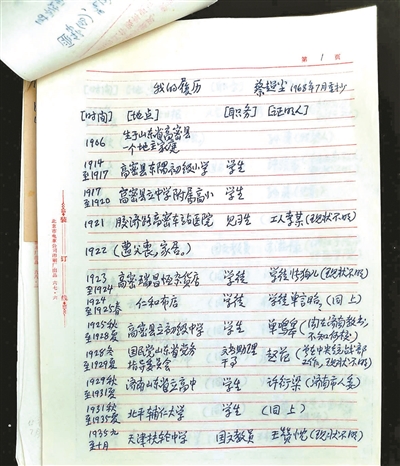 第 1 页
我的履历 蔡超尘 1968年7月重抄
[时间] [地点] [职务] [证明人]
1906 生于山东省高密县
一个地主家庭
1914
至1917 高密县东隅初级小学 学生
1917
至1920 高密县立中学附属高小 学生
1921 胶济路高密车站医院 见习生 工人李某(现状不明)
1922 (遭父丧,家居。)
1923
至1924 高密瑞昌恒杂货店 学徒 学徒 (现状不明)
1924
至1925春 仁和布店 学徒 学徒单言 (同上)
1925秋
至1928夏 高密县立初级中学 学生 单鸣皋 (闻在济南教书,
不知何校)
1928冬
至1929夏 国民党山东省党务
指导委员会 文书助理
干事 赵 (曾在中央统战部
工作,现状不明)
1929秋
至1931夏 济南山东省立高中 学生 许衍梁 (济南市人委)
1931秋
至1935夏 北平辅仁大学 学生 (同上)
1935元
至十月 天津扶轮中学 国文教员 王 (现状不明)
装订线